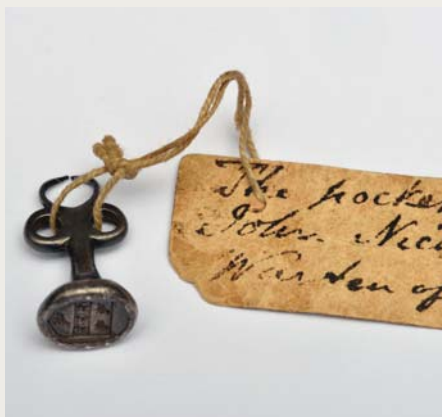 The pocke
John Nic
Warden of